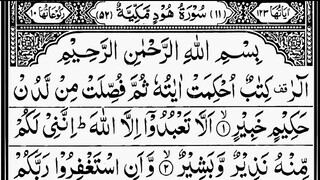 اٰیَاتُهَا ۱۲۳ (۱۱) سُوْرَةُ هُوْدٍ مَّكِّيَّةٌ (۵۲) رُكُوْعَاتُهَا ۱۰
بِسْمِ اللّٰهِ الرَّحْمٰنِ الرَّحِيْمِ
الٓرٰ قف كِتٰبٌ اُحْكِمَتْ اٰيٰتُهٗ ثُمَّ فُصِّلَتْ مِنْ لَّدُنْ
حَكِيْمٍ خَبِيْرٍ ۙ﴿۱﴾ اَلَّا تَعْبُدُوْۤا اِلَّا اللّٰهَ ؕ اِنَّنِيْ لَكُمْ
مِّنْهُ نَذِيْرٌ وَّبَشِيْرٌ ۙ﴿۲﴾ وَّاَنِ اسْتَغْفِرُوْا رَبَّكُمْ